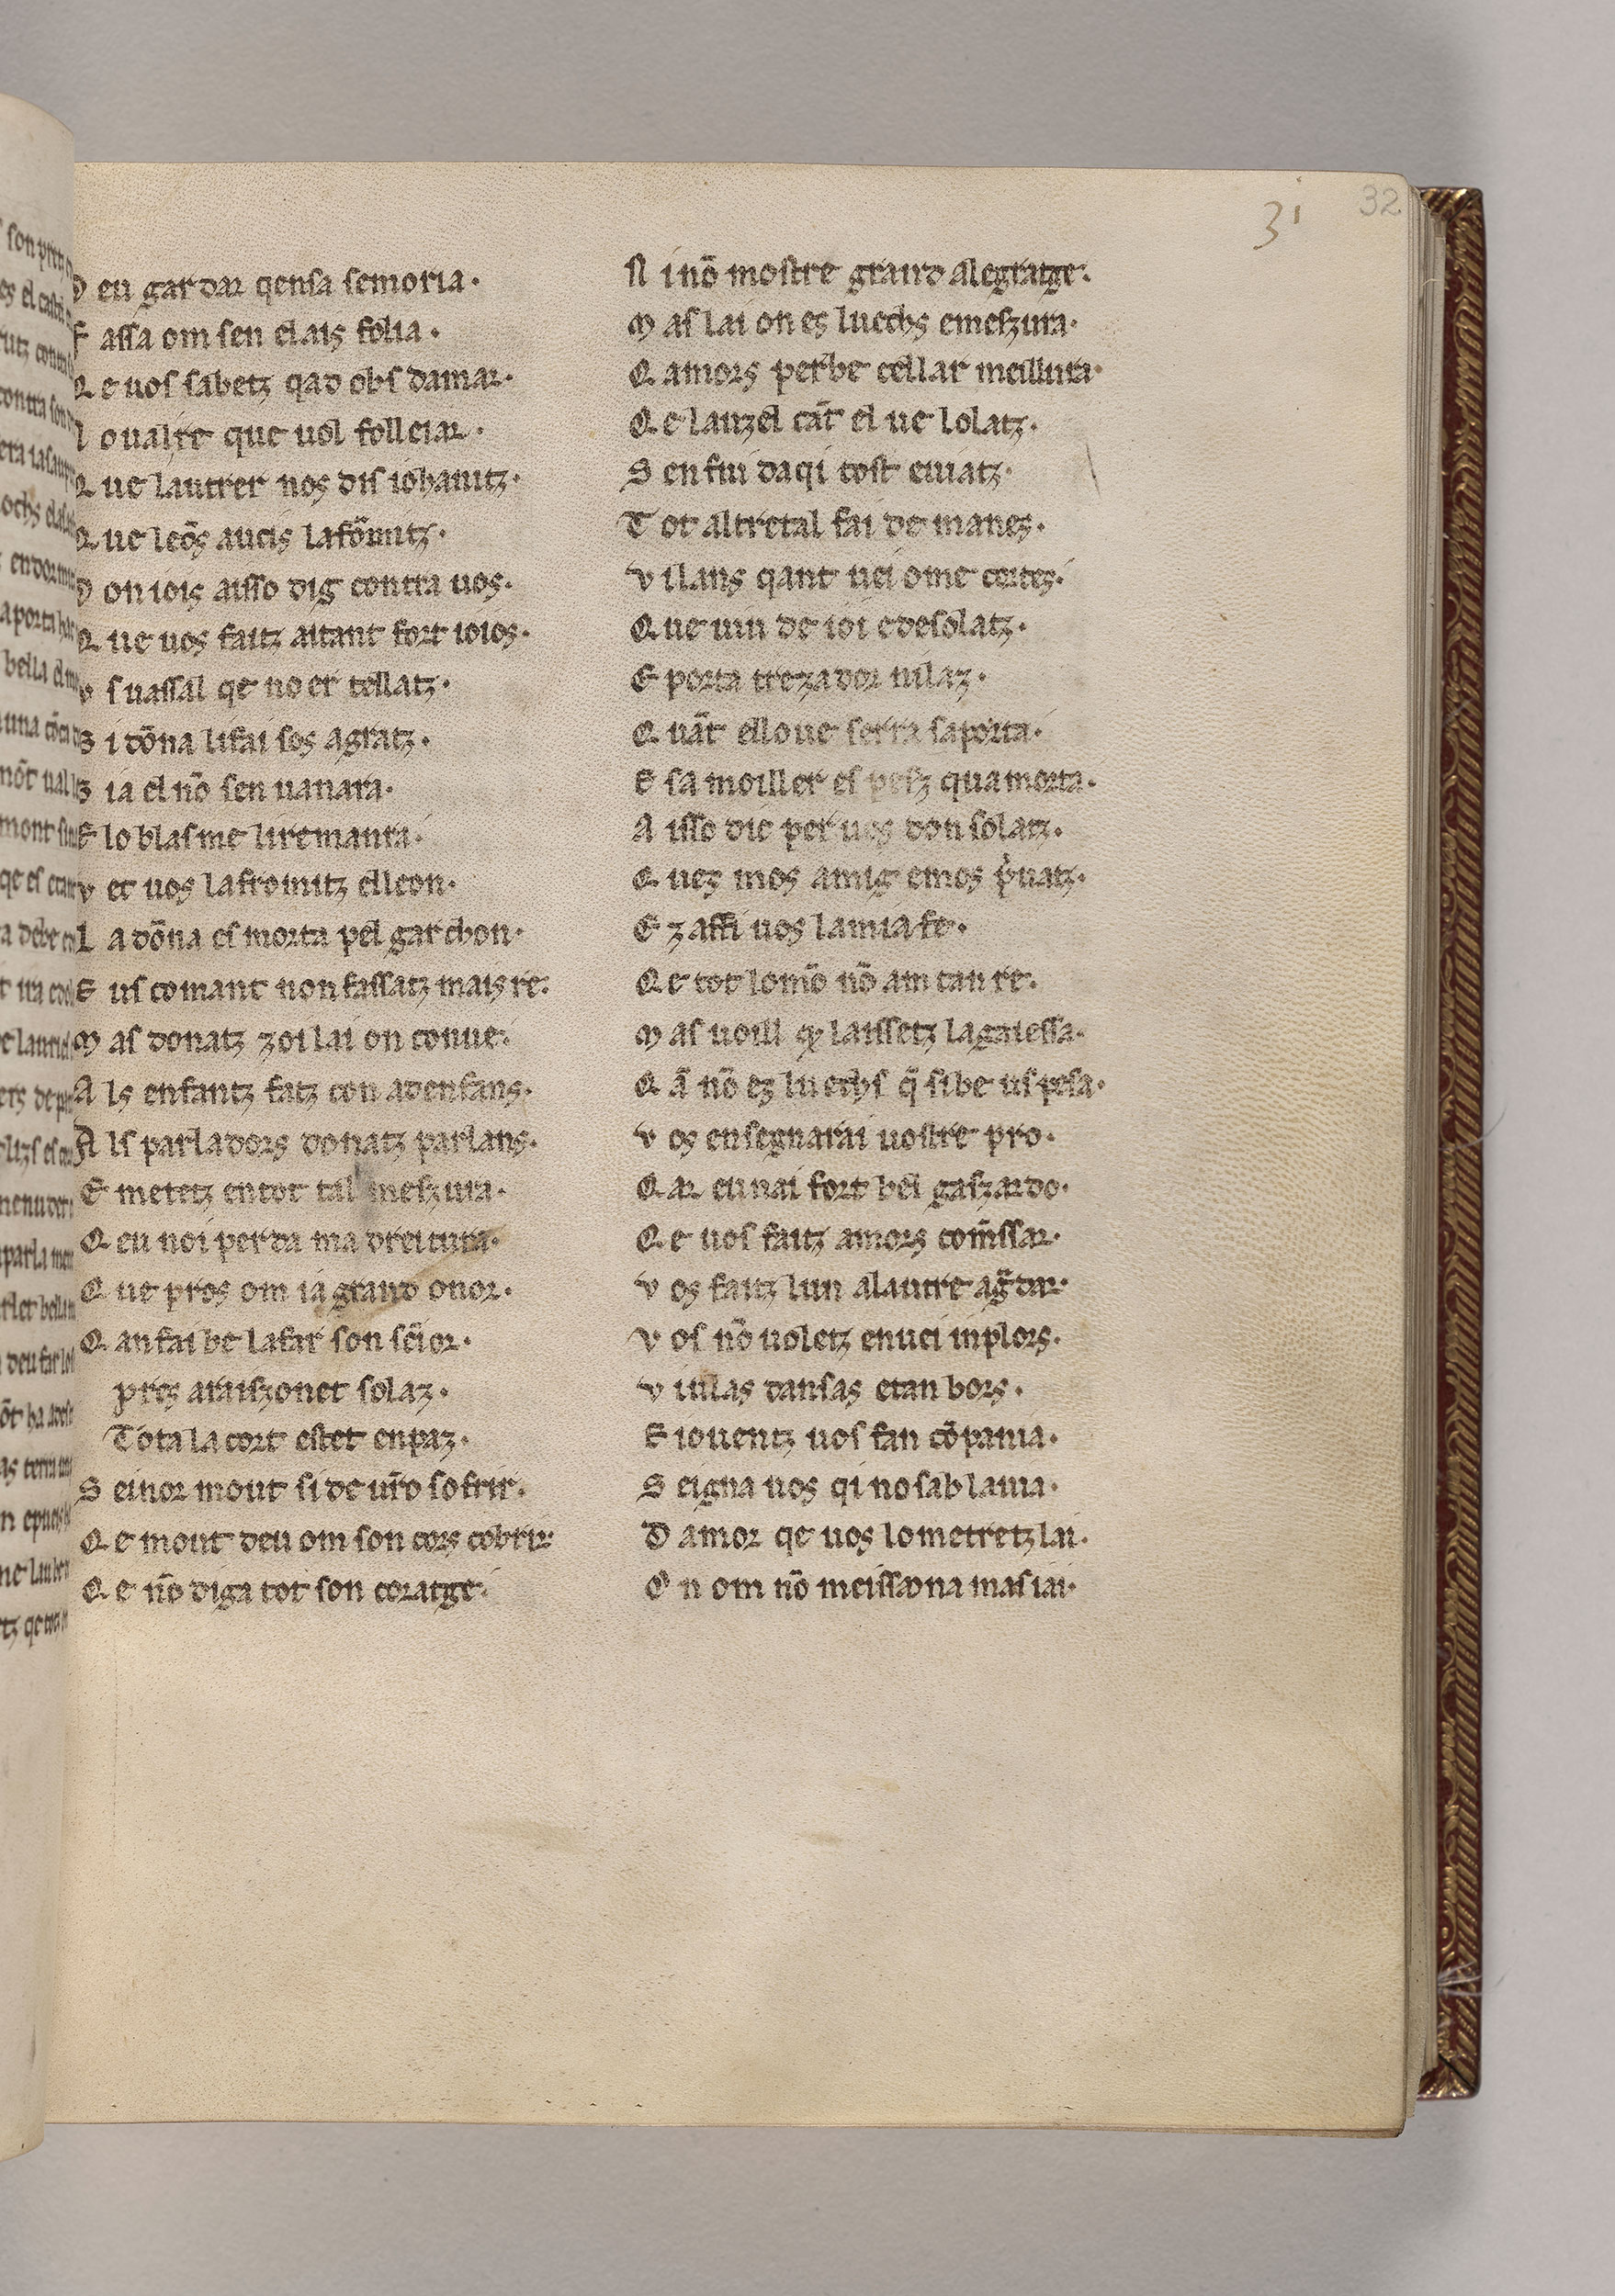 31
32
D eu gardar qensa semoria·
F assa om sen elais folia·
Q e uos sabetz qad obs damar·
l oualre que uol folleiar·
Q ue lautrer nos dis iohanitz·
Q ue leōs aucis lafōmitz·
D on iois aisso dig contra uos·
Q ue uos faitz aitant fort ioios·
V s uassal qe no er cellatz·
S i dōna lifai ses agratz·
S ia el nō sen uanara·
E lo blasme liremanra·
V et uos lafromitz elleon·
L a dōna es morta pel garchon·
E us comant non fassatz mais re·
M as donatz zoi lai on conue·
A ls enfantz fatz con adenfans·
A ls parladors donatz parlans·
E metetz entot tal meszura·
Q eu noi perda ma dreitura·
Q ue pros om ia grand onor·
Q an fai be lafar son seīor·
prez araiszonet solaz·
Tota la cort estet enpaz·
S einor mout si de ur̄o sofrir·
Q e mout deu om son cors cobrir
Q e nō diga tot son coratge·
N i nō mostre grand alegratge·
M as lai on es luechs emeszura·
Q amors perbe cellar meillura·
Q e lauzel cāt el ue lolatz·
S en fui daqi tost euiatz·
T ot altretal fai de manes·
V ilans qant uei ome cortes·
Q ue uiu de ioi edesolatz·
E porta trezador uilaz·
Q uāt ello ue serra saporta·
E sa moiller es pesz qua morta·
A isso dic per uos don solatz·
Q uez mos amig emos p̓uatz·
E z affi uos lamia fe·
Q e tot lomō nō am tan re·
M as uoill q̨ laissetz lagaiessa·
Q ā nō ez luechs q̄ sibe us pesa·
V os ensegnarai uostre pro·
Q ar eu nai fort bel gaszardo·
Q e uos faitz amors com̄ssar·
V os faitz lun alautre ag̃dar·
V os nō uoletz enuei inplors·
V iulas dansas etan bors·
E iouentz uos fan cōpania·
S eigna uos qi no sablauia·
D amor qe uos lo metretz lai·
O n om nō meissona mas iai·